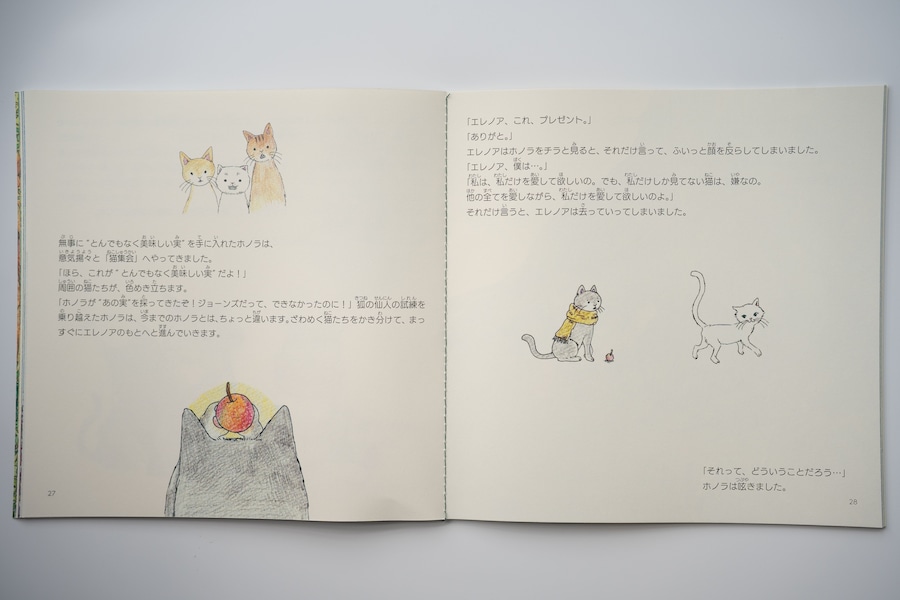 無事に“とんでもなく美味しい実”を手に入れたホノラは、
意気揚々と「猫集会」へやってきました。
「ほら、これが“とんでもなく美味しい実”だよ！」
周囲の猫たちが、色めき立ちます。
「ホノラが“あの実”を採ってきたぞ！ジョーンズだって、できなかったのに！」狐の仙人の試練を
乗り越えたホノラは、今までのホノラとは、ちょっと違います。ざわめく猫たちをかき分けて、まっ
すぐにエレノアのもとへと進んでいきます。
27
「エレノア、これ、プレゼント。」
「ありがと。」
エレノアはホノラをチラと見ると、それだけ言って、ふいっと顔を反らしてしまいました。
「エレノア、僕は…。」
「私は、私だけを愛して欲しいの。でも、私だけしか見てない猫は、嫌なの。
他の全てを愛しながら、私だけを愛して欲しいのよ。」
それだけ言うと、エレノアは去っていってしまいました。
「それって、どういうことだろう…」
ホノラは呟きました。
28